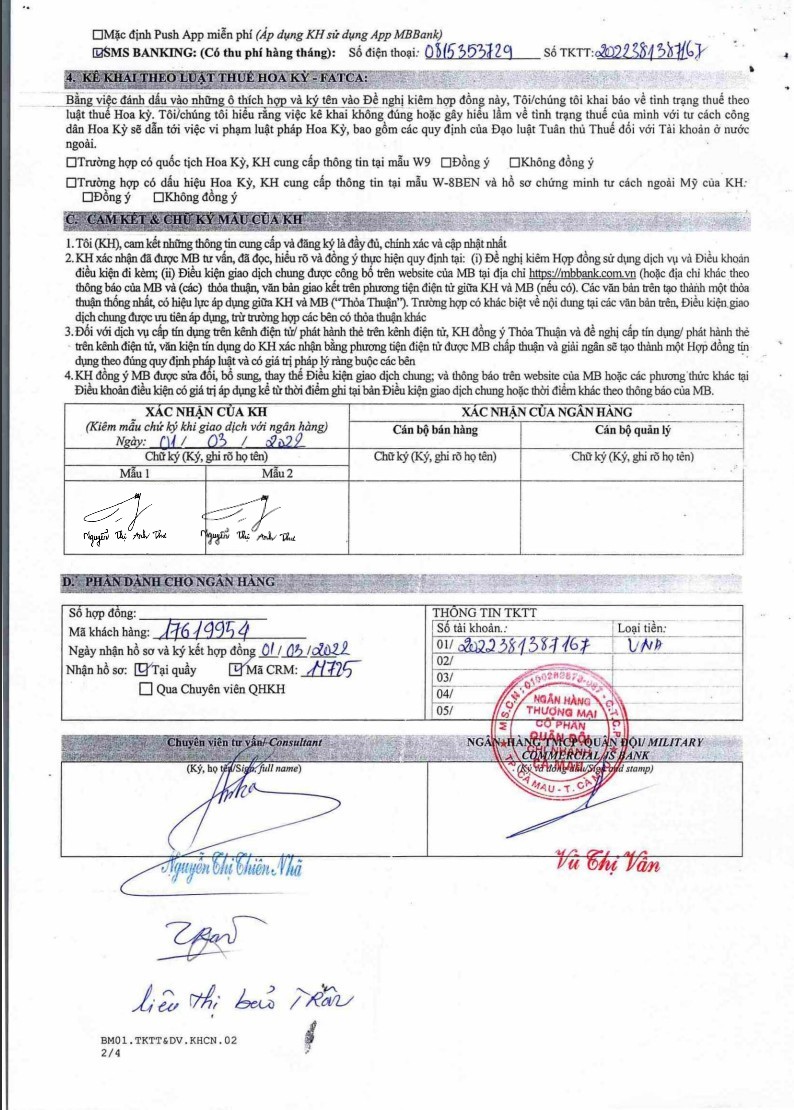 ☐Mặc định Push App miễn phí (Áp dụng KH sử dụng App MBBank)
☑SMS BANKING: (Có thu phí hàng tháng): Số điện thoại: 0815353729 Số TKTT: 2022381387167
4. KÊ KHAI THEO LUẬT THUẾ HOA KỲ - FATCA:
Bằng việc đánh dấu vào những ô thích hợp và ký tên vào Đề nghị kiêm hợp đồng này, Tôi/chúng tôi khai báo về tình trạng thuế theo
luật thuế Hoa kỳ. Tôi/chúng tôi hiểu rằng việc kê khai không đúng hoặc gây hiểu lầm về tình trạng thuế của mình với tư cách công
dân Hoa Kỳ sẽ dẫn tới việc vi phạm luật pháp Hoa Kỳ, bao gồm các quy định của Đạo luật Tuân thủ Thuế đối với Tài khoản ở nước
ngoài.
☐Trường hợp có quốc tịch Hoa Kỳ, KH cung cấp thông tin tại mẫu W9 ☐Đồng ý ☐Không đồng ý
☐Trường hợp có dấu hiệu Hoa Kỳ, KH cung cấp thông tin tại mẫu W-8BEN và hồ sơ chứng minh tư cách ngoài Mỹ của KH:
☐Đồng ý ☐Không đồng ý
C. CAM KẾT & CHỮ KÝ MẪU CỦA KH
1. Tôi (KH), cam kết những thông tin cung cấp và đăng ký là đầy đủ, chính xác và cập nhật nhất
2. KH xác nhận đã được MB tư vấn, đã đọc, hiểu rõ và đồng ý thực hiện quy định tại: (i) Đề nghị kiêm Hợp đồng sử dụng dịch vụ và Điều khoản
điều kiện đi kèm; (ii) Điều kiện giao dịch chung được công bố trên website của MB tại địa chỉ https://mbbank.com.vn (hoặc địa chỉ khác theo
thông báo của MB và (các) thỏa thuận, văn bản giao kết trên phương tiện điện tử giữa KH và MB (nếu có). Các văn bản trên tạo thành một thỏa
thuận thống nhất, có hiệu lực áp dụng giữa KH và MB ("Thỏa Thuận"). Trường hợp có khác biệt về nội dung tại các văn bản trên, Điều kiện giao
dịch chung được ưu tiên áp dụng, trừ trường hợp các bên có thỏa thuận khác
3. Đối với dịch vụ cấp tín dụng trên kênh điện tử/ phát hành thẻ trên kênh điện tử, KH đồng ý Thỏa Thuận và đề nghị cấp tín dụng/ phát hành thẻ
trên kênh điện tử, văn kiện tín dụng do KH xác nhận bằng phương tiện điện tử được MB chấp thuận và giải ngân sẽ tạo thành một Hợp đồng tín
dụng theo đúng quy định pháp luật và có giá trị pháp lý ràng buộc các bên
4. KH đồng ý MB được sửa đổi, bổ sung, thay thế Điều kiện giao dịch chung; và thông báo trên website của MB hoặc các phương thức khác tại
Điều khoản điều kiện có giá trị áp dụng kể từ thời điểm ghi tại bản Điều kiện giao dịch chung hoặc thời điểm khác theo thông báo của MB.
XÁC NHẬN CỦA KH XÁC NHẬN CỦA NGÂN HÀNG
(Kiêm mẫu chữ ký khi giao dịch với ngân hàng) Cán bộ bán hàng Cán bộ quản lý
Ngày: 01 / 03 / 2022
Chữ ký (Ký, ghi rõ họ tên) Chữ ký (Ký, ghi rõ họ tên) Chữ ký (Ký, ghi rõ họ tên)
Mẫu 1 Mẫu 2
Nguyễn Thị Anh Thư Nguyễn Thị Anh Thư
D. PHẦN DÀNH CHO NGÂN HÀNG
Số hợp đồng: THÔNG TIN TKTT
Mã khách hàng: 17619954 Số tài khoản.: Loại tiền:
Ngày nhận hồ sơ và ký kết hợp đồng 01 / 03 / 2022 01/ 2022381387167 VNĐ
02/
Nhận hồ sơ: ☑Tại quầy ☑Mã CRM: 11725 03/
☐ Qua Chuyên viên QHKH 04/
05/
NGÂN HÀNG
THƯƠNG MẠI
CỔ PHẦN
QUÂN ĐỘI
CHI NHÁNH
CÀ MAU
TP. CÀ MAU - T. CÀ MAU
Chuyên viên tư vấn/ Consultant NGÂN HÀNG TMCP QUÂN ĐỘI/ MILITARY
COMMERCIAL JS BANK
(Ký, họ tên/Sign, full name) (Ký và đóng dấu/Sign and stamp)
Nguyễn Thị Thiên Nhã Vũ Thị Vân
Trân
Liêu Thị bảo Trân
BM01.TKTT&DV.KHCN.02
2/4